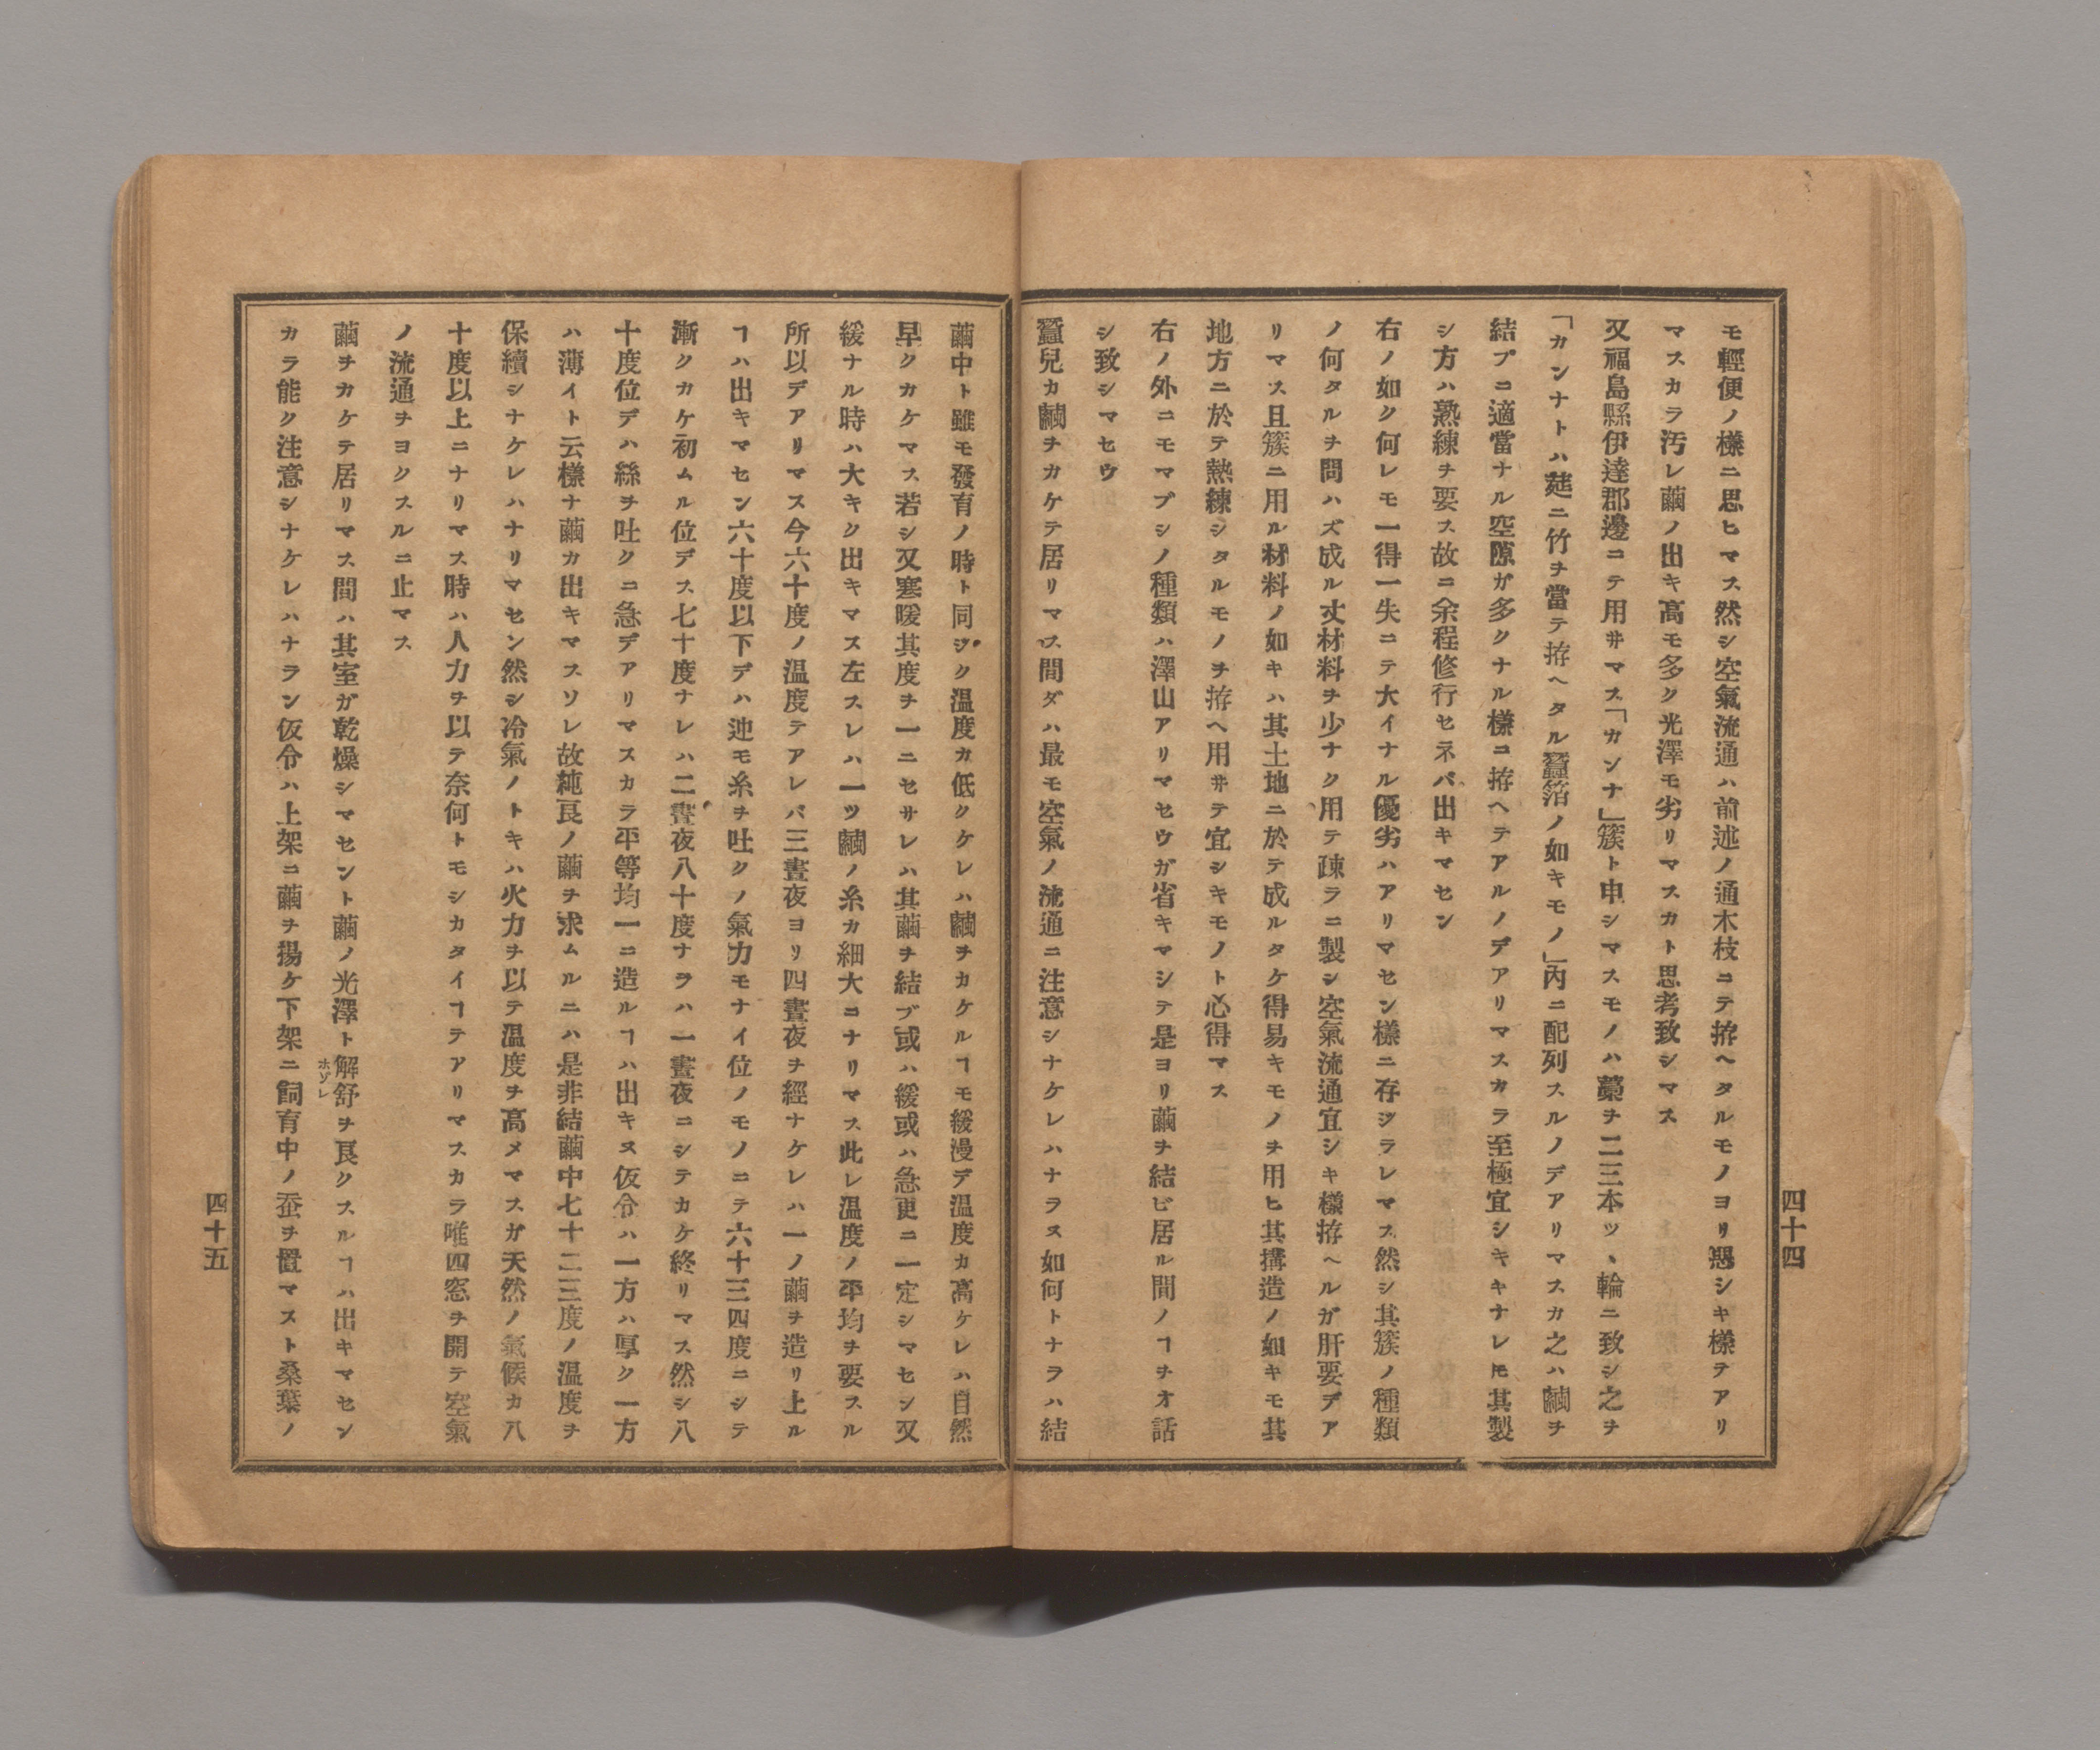 モ輕便ノ樣ニ思ヒマス然シ空氣流通ハ前述ノ通木枝ニテ拵ヘタルモノヨリ惡シキ樣テアリ
マスカラ汚レ繭ノ出キ高モ多ク光澤モ劣リマスカト思考致シマス
又福島縣伊達郡邊ニテ用井マス「カンナ」簇ト申シマスモノハ藁ヲ二三本ツヽ輪ニ致シ之ヲ
「カンナトハ莚ニ竹ヲ當テ拵ヘタル蠶箔ノ如キモノ」内ニ配列スルノデアリマスカ之ハ繭ヲ
結プニ適當ナル空隙ガ多クナル樣ニ拵ヘテアルノデアリマスカラ至極宜シキキナレモ其製
シ方ハ熟練ヲ要ス故ニ余程修行セネバ出キマセン
右ノ如ク何レモ一得一失ニテ大イナル優劣ハアリマセン樣ニ存ジラレマス然シ其簇ノ種類
ノ何タルヲ問ハズ成ル丈材料ヲ少ナク用テ疎ラニ製シ空氣流通宜シキ樣拵ヘルガ肝要デア
リマス且簇ニ用ル材料ノ如キハ其土地ニ於テ成ルタケ得易キモノヲ用ヒ其搆造ノ如キモ其
地方ニ於テ熱練シタルモノヲ拵ヘ用井テ宜シキモノト心得マス
右ノ外ニモマブシノ種類ハ澤山アリマセウガ省キマシテ是ヨリ繭ヲ結ビ居ル間ノヿヲオ話
シ致シマセウ
蠶兒カ繭ヲカケテ居リマス間ダハ最モ空氣ノ流通ニ注意シナケレハナラヌ如何トナラハ結
四十四
繭中ト雖モ發育ノ時ト同ジク温度カ低クケレハ繭ヲカケルヿモ緩漫デ温度カ高ケレハ自然
早クカケマス若シ又寒暖其度ヲ一ニセサレハ其繭ヲ結ブ或ハ緩或ハ急更ニ一定シマセシ又
緩ナル時ハ大キク出キマス左スレハ一ツ繭ノ糸カ細大ニナリマス此レ温度ノ平均ヲ要スル
所以デアリマス今六十度ノ温度テアレバ三晝夜ヨリ四晝夜ヲ經ナケレハ一ノ繭ヲ造リ上ル
ヿハ出キマセン六十度以下デハ迚モ糸ヲ吐クノ氣力モナイ位ノモノニテ六十三四度ニシテ
漸クカケ初ムル位デス七十度ナレハ二晝夜八十度ナラハ一晝夜ニシテカケ終リマス然シ八
十度位デハ絲ヲ吐クニ急デアリマスカラ平等均一ニ造ルヿハ出キヌ仮令ハ一方ハ厚ク一方
ハ薄イト云樣ナ繭カ出キマスソレ故純良ノ繭ヲ求ムルニハ是非結繭中七十二三度ノ温度ヲ
保續シナケレハナリマセン然シ冷氣ノトキハ火力ヲ以テ温度ヲ高メマスガ天然ノ氣候カ八
十度以上ニナリマス時ハ人力ヲ以テ奈何トモシカタイヿテアリマスカラ唯四窓ヲ開テ空氣
ノ流通ヲヨクスルニ止マス
繭ヲカケテ居リマス間ハ其室ガ乾燥シマセント繭ノ光澤ト解舒ヲ良クスルヿハ出キマセン
ホゾレ
カラ能ク注意シナケレハナラン仮令ハ上架ニ繭ヲ揚ケ下架ニ飼育中ノ蚕ヲ置マスト桑葉ノ
四十五